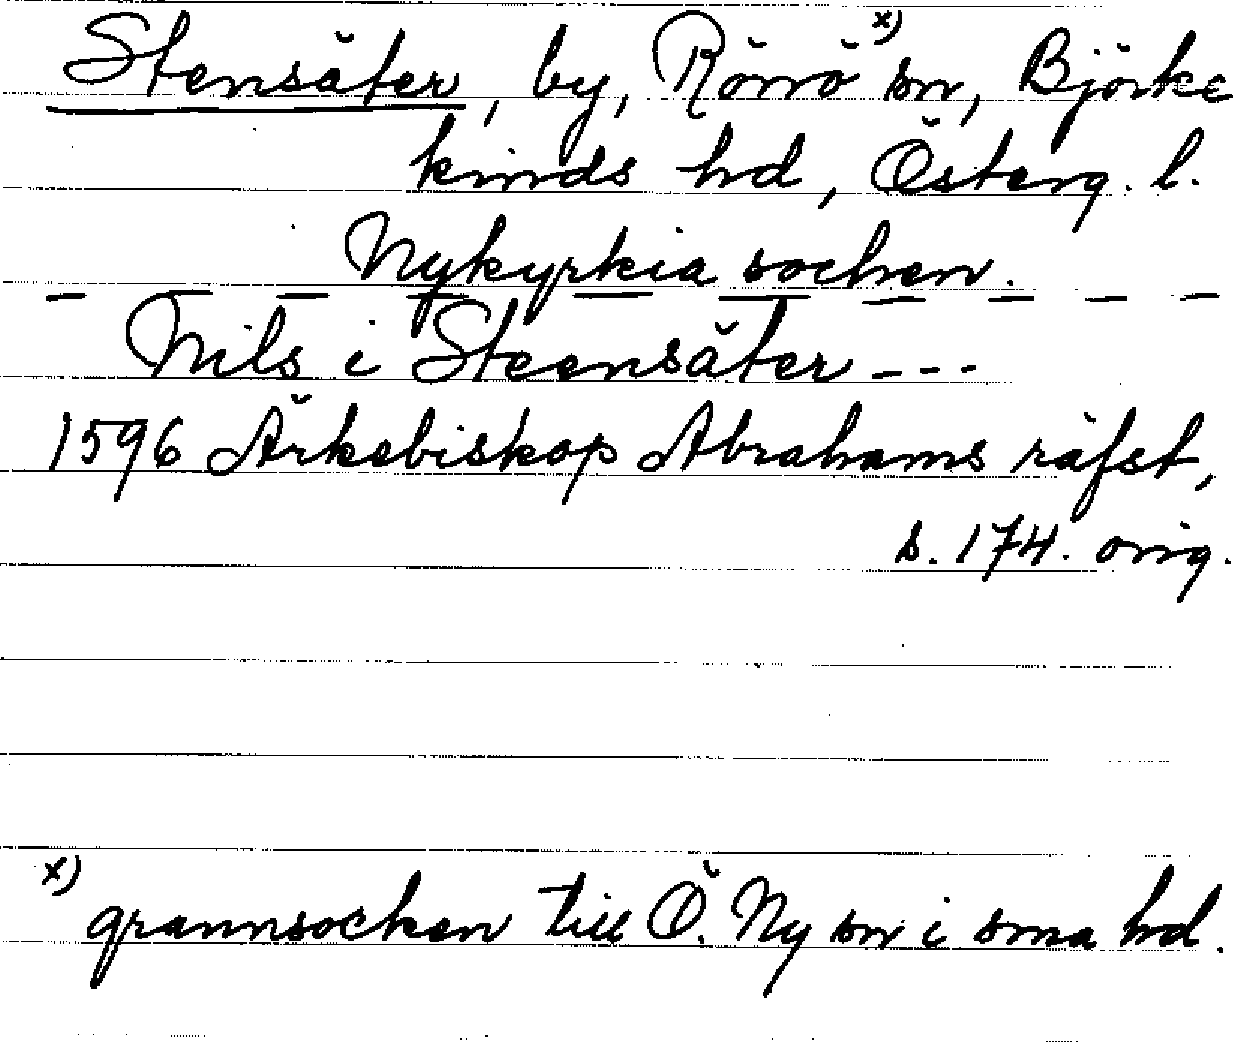 Stensäter, by, Rönö x) sn, Björke
kinds hd, Österg. l.
Nykyrkia sochen.
Nils i Steensäter ---
1596 Ärkebiskop Abrahams räfst,
s. 174. orig.
x) grannsocken till Ö. Ny sn i sma hd.